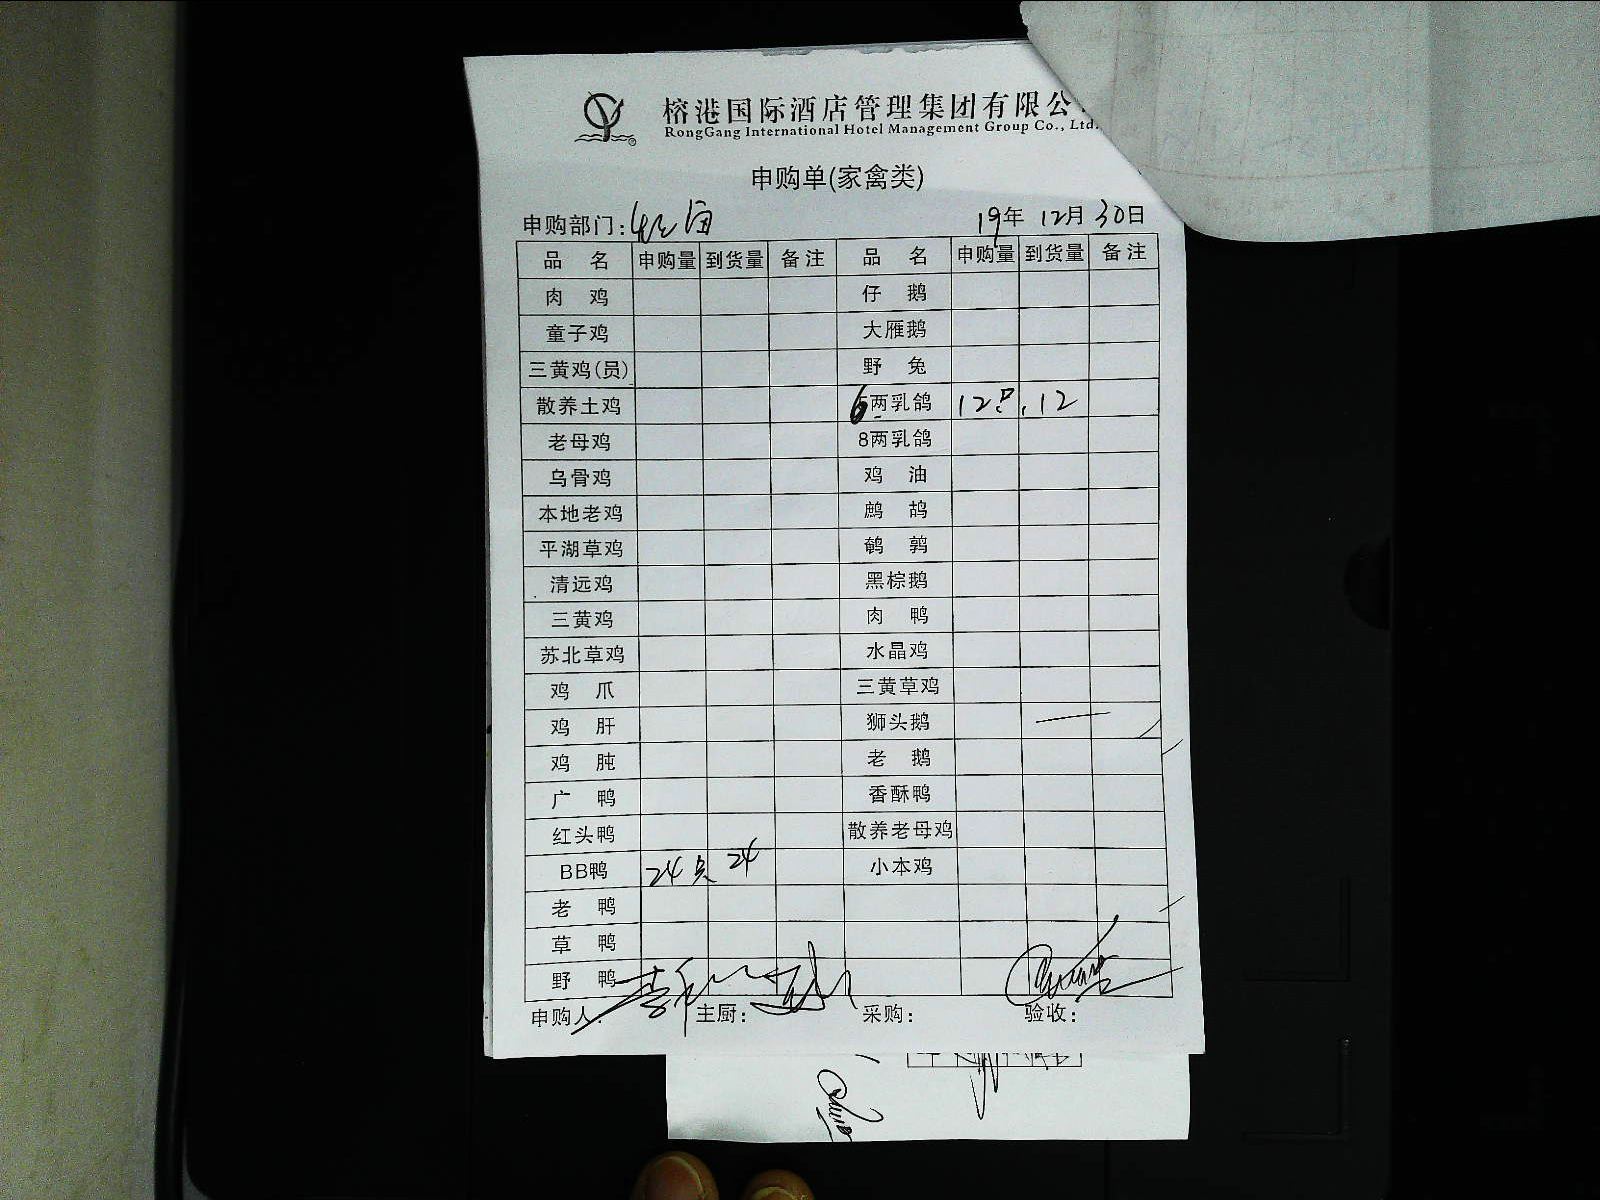 榕港国际酒店管理集团有限公
RongGang International Hotel Management Group Co., Ltd.
申购单(家禽类)
申购部门: 19年 12月 30日
品 名 申购量 到货量 备注 品 名 申购量 到货量 备注
肉 鸡 仔 鹅
童子鸡 大雁鹅
三黄鸡(员) 野 兔
散养土鸡 6两乳鸽 12只 12
老母鸡 8两乳鸽
乌骨鸡 鸡 油
本地老鸡 鹧 鸪
平湖草鸡 鹌 鹑
清远鸡 黑棕鹅
三黄鸡 肉 鸭
苏北草鸡 水晶鸡
鸡 爪 三黄草鸡
鸡 肝 狮头鹅
鸡 肫 老 鹅
广 鸭 香酥鸭
红头鸭 散养老母鸡
BB鸭 24只 24 小本鸡
老 鸭
草 鸭
野 鸭
申购人: 主厨: 采购: 验收: